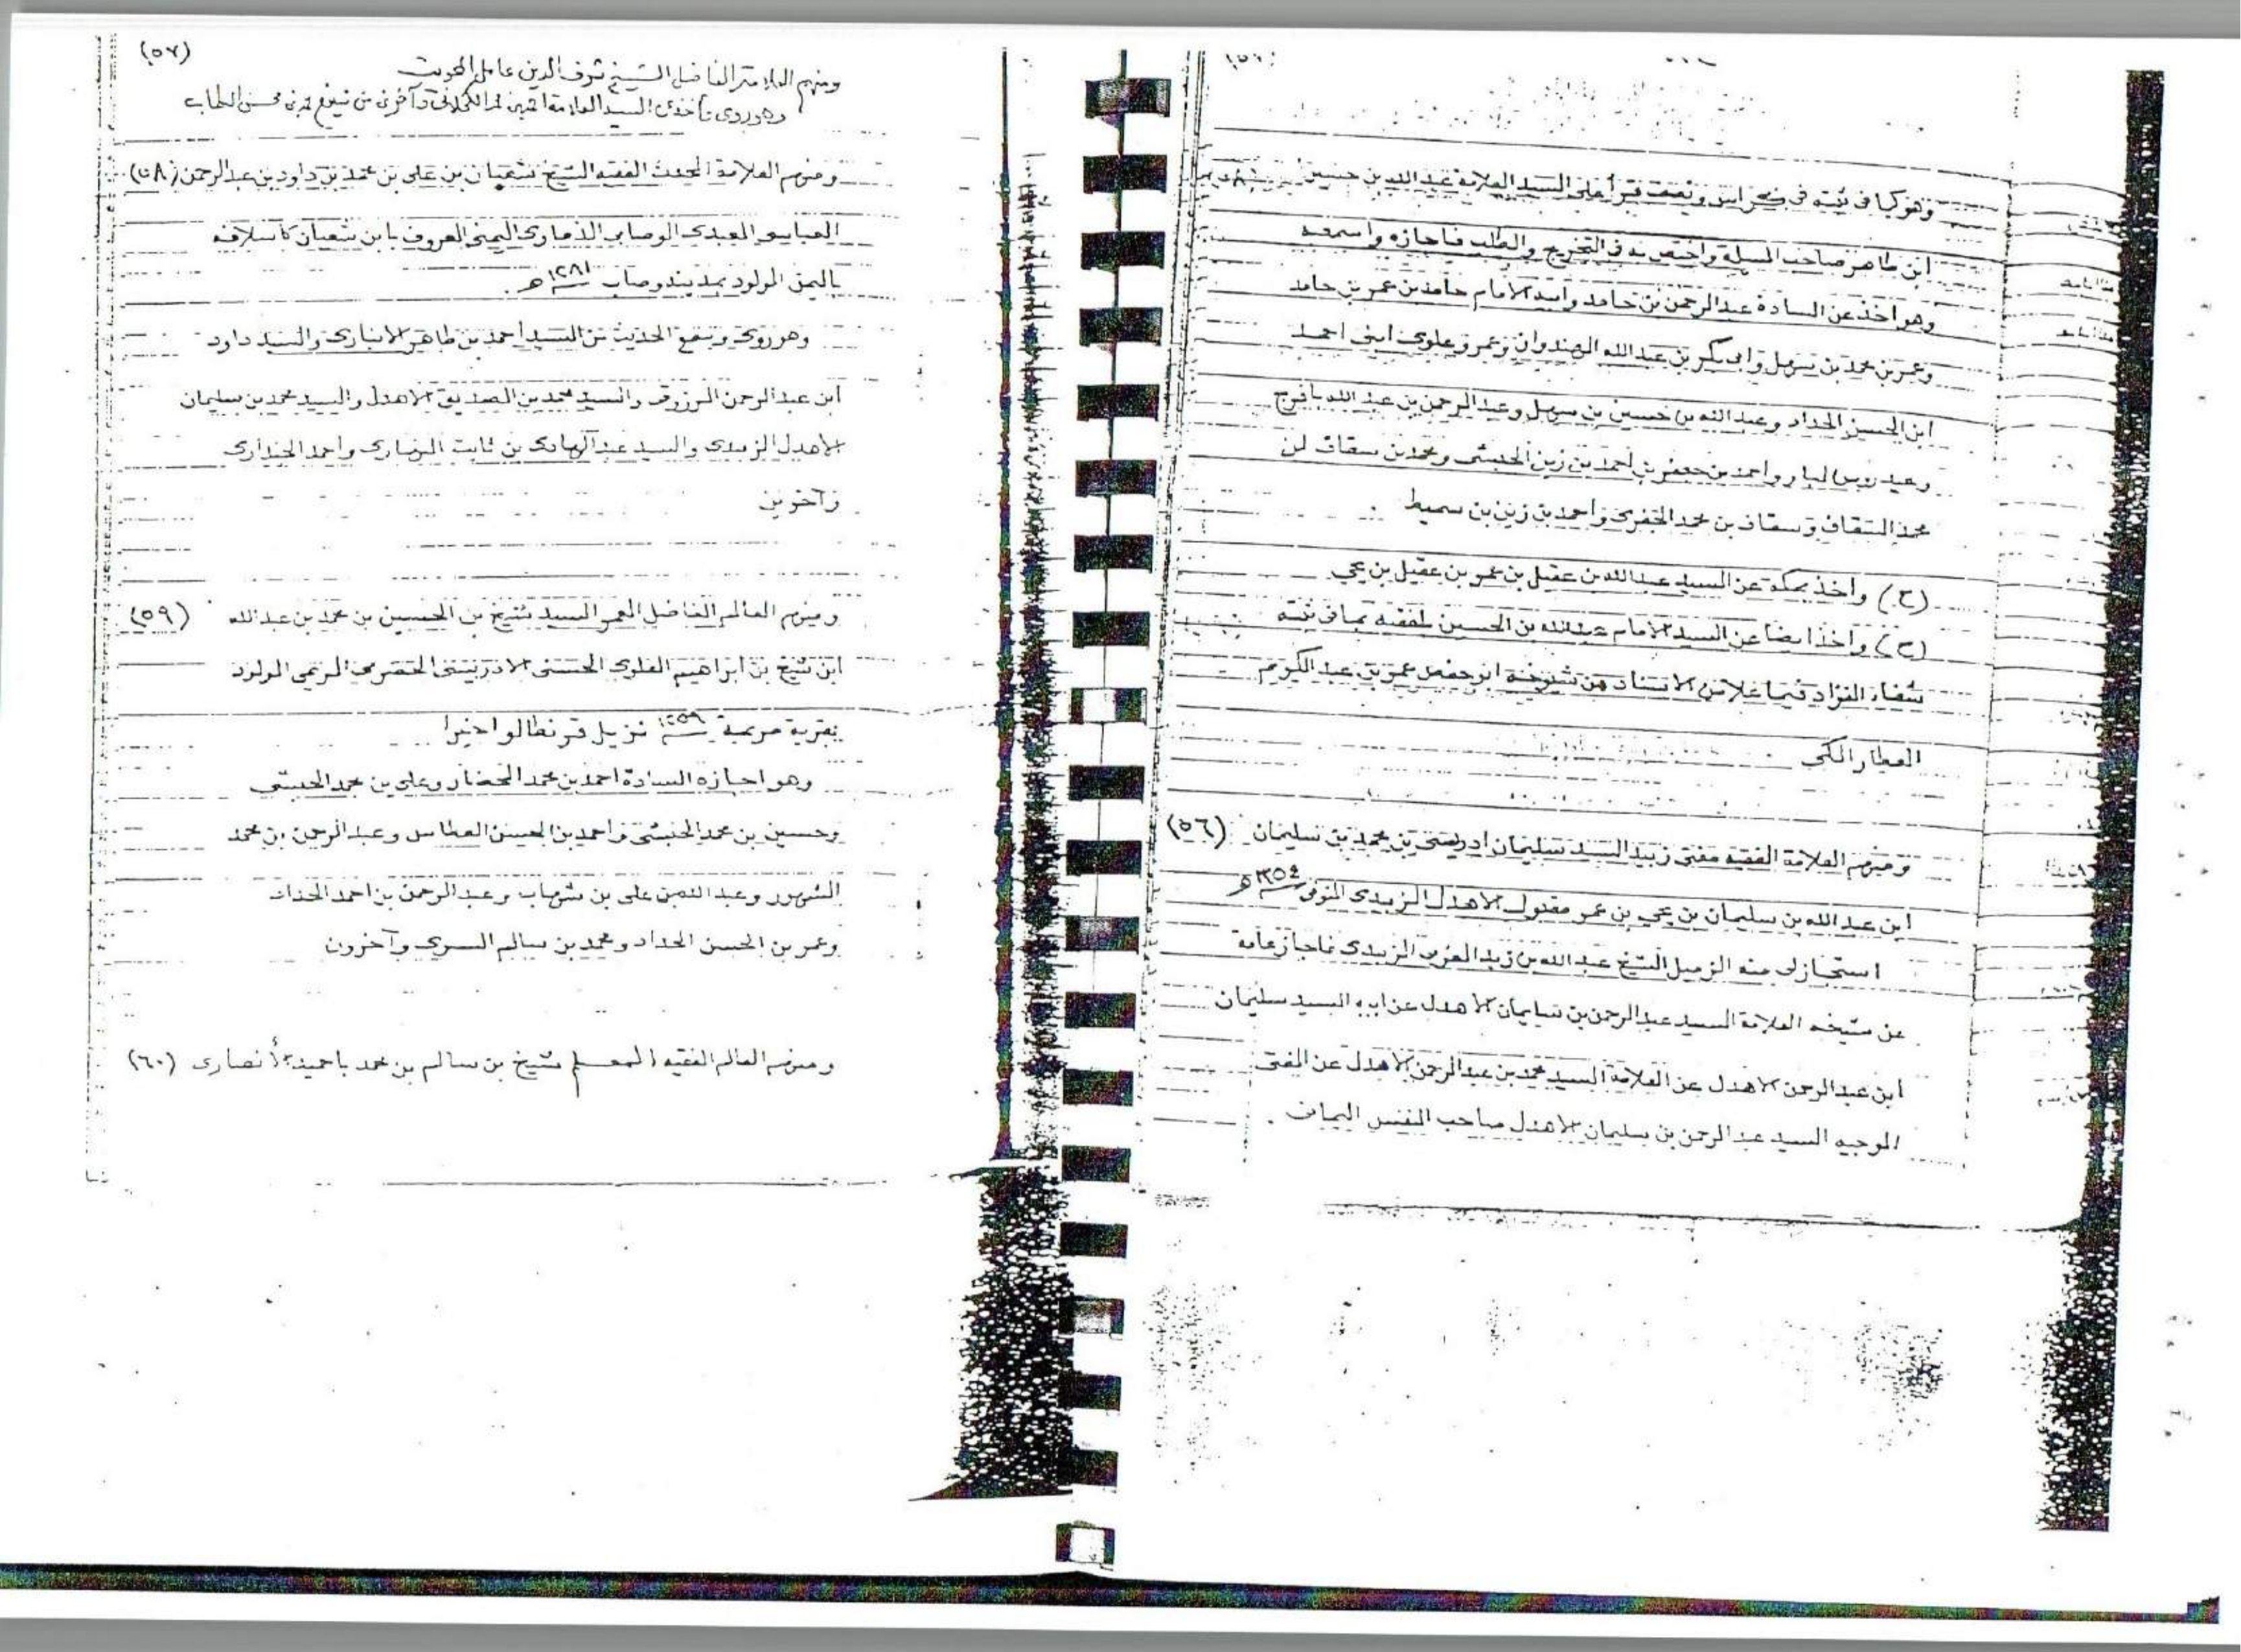 وهو كما في ثبته في كراس ونصف قرأ على السيد العلامة عبد الله بن حسين
ابن طاهر صاحب المسيلة واختص به في التخريج والطلب فاجازه واسمعه
وهو اخذ عن السادة عبد الرحمن بن حامد وابيه الامام حامد بن عمر بن حامد
وعمر بن محمد بن سهل وابي بكر بن عبد الله الهندوان وعمر وعلوي ابني احمد
ابن الحسن الحداد وعبد الله بن حسين بن سهل وعبد الرحمن بن عبد الله بافرج
وعيدروس البار واحمد بن جعفر بن احمد بن زين الحبشي ومحمد بن سقاف بن
محمد السقاف وسقاف بن محمد الجفري واحمد بن زين بن سميط
(ح) واخذ بمكة عن السيد عبد الله بن عقيل بن عمر بن عقيل بن يحي
(ح) واخذ ايضا عن السيد الامام عبد الله بن الحسين بلفقيه بما في ثبته
شفاء الفؤاد فيما علا من الاسناد من شيوخه ابو حفص عمر بن عبد الكريم
العطار المكي
ومنهم العلامة الفقيه مفتي زبيد السيد سليمان ادريسي بن محمد بن سليمان (٥٦)
ابن عبد الله بن سليمان بن يحي بن عمر مقبول الاهدل الزبيدي المتوفى ١٣٥٤ ه
استجاز لي منه الزميل الشيخ عبد الله بن زيد المغربي الزبيدي فاجاز عامة
عن شيخه العلامة السيد عبد الرحمن بن سليمان الاهدل عن ابيه السيد سليمان
ابن عبد الرحمن الاهدل عن العلامة السيد محمد بن عبد الرحمن الاهدل عن المفتي
الوجيه السيد عبد الرحمن بن سليمان الاهدل صاحب النفس اليماني .
(٥٧)
ومنهم العلامة الفاضل الشيخ شرف الدين عامل المحويت
وهو روى بأخذه السيد العلامة وآخرين من محمد بن محسن
ومنهم العلامة المحدث الفقيه الشيخ شعبان بن علي بن محمد بن داود بن عبد الرحمن (٥٨)
العباسي العبدي الوصابي الذماري اليمني المعروف بابن شعبان كأسلافه
باليمن المولود بمدينة وصاب ١٢٨١ ه
وهو روى وسمع الحديث عن السيد احمد بن طاهر الانباري والسيد داود
ابن عبد الرحمن المرزوقي والسيد محمد بن الصديق الاهدل والسيد محمد بن سليمان
الاهدل الزبيدي والسيد عبد الهادي بن ثابت النهاري واحمد الجنداري
وآخرين
ومنهم العالم الفاضل المعمر السيد شيخ بن الحسين بن محمد بن عبد الله (٥٩)
ابن شيخ بن ابراهيم العلوي الحسني الادريسي الحضرمي الريمي المولود
بقرية مريمة ١٢٥٩ نزيل قرنطالو اخيرا
وهو اجازه السادة احمد بن محمد المحضار وعلي بن محمد الحبشي
وحسين بن محمد الحبشي واحمد بن الحسن العطاس وعبد الرحمن بن محمد
المشهور وعبد الله بن علي بن شهاب وعبد الرحمن بن احمد الحداد
وعمر بن الحسن الحداد ومحمد بن سالم السري وآخرون
ومنهم العالم الفقيه المعلم شيخ بن سالم بن محمد باحميد الأنصاري (٦٠)